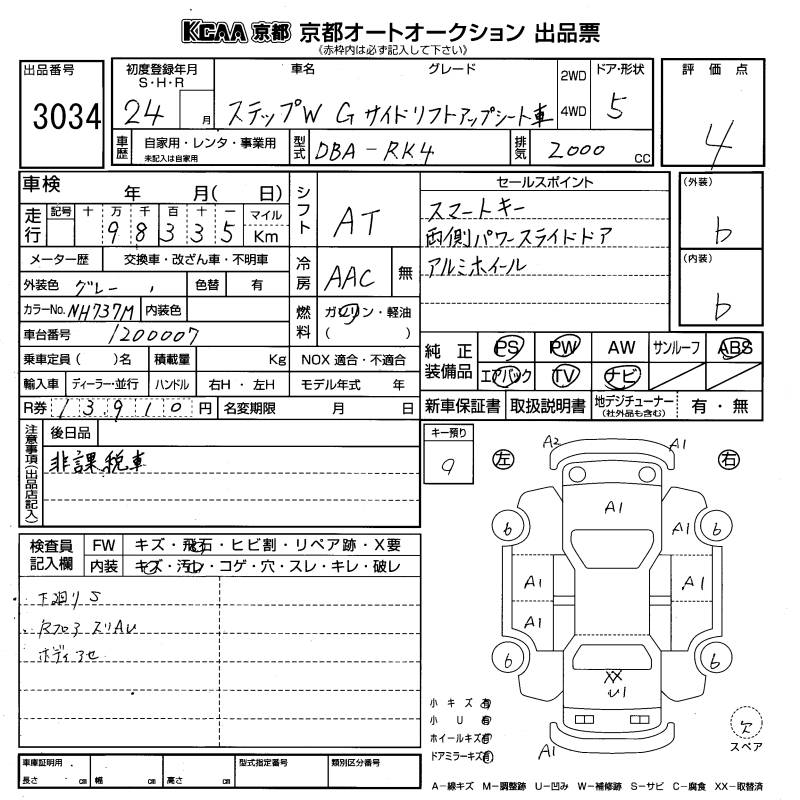 KCAA 京都 京都オートオークション 出品票
《赤枠内は必ず記入して下さい》
出品番号
3034
初度登録年月
S・H・R
24 月
車名 グレード
ステップW G サイドリフトアップシート車
2WD
4WD
ドア・形状
5
評価点
4
車歴
自家用・レンタ・事業用
未記入は自家用
型式
DBA-RK4
排気
2000 cc
車検 年 月( 日)
走行
記号 十 万 千 百 十 一 マイル
9 8 3 3 5 Km
メーター歴 交換車・改ざん車・不明車
外装色 グレー 色替 有
カラーNo. NH737M 内装色
車台番号 1200007
乗車定員( )名 積載量 Kg NOX 適合・不適合
輸入車 ディーラー・並行 ハンドル 右H・左H モデル年式 年
R券 13910 円 名変期限 月 日
シフト AT
冷房 AAC 無
燃料 ガソリン・軽油
( )
セールスポイント
スマートキー
両側パワースライドドア
アルミホイール
(外装)
b
(内装)
b
純正装備品
PS PW AW サンルーフ ABS
エアバック TV ナビ
新車保証書 取扱説明書 地デジチューナー
(社外品も含む)
有・無
注意事項(出品店記入)
後日品
非課税車
キー預り
9
検査員記入欄
FW キズ・飛石・ヒビ割・リペア跡・X要
内装 キズ・汚レ・コゲ・穴・スレ・キレ・破レ
下廻りS
Rフロア スリAU
ボディアセ
左 右
A2 A1
A1
A1
b b
A1 A1
A1
b b
XX
U1
A1
小キズ 有
小U 有
ホイールキズ 有
ドアミラーキズ 有
欠
スペア
車庫証明用
長さ cm 幅 cm 高さ cm
型式指定番号
類別区分番号
A-線キズ M-調整跡 U-凹み W-補修跡 S-サビ C-腐食 XX-取替済